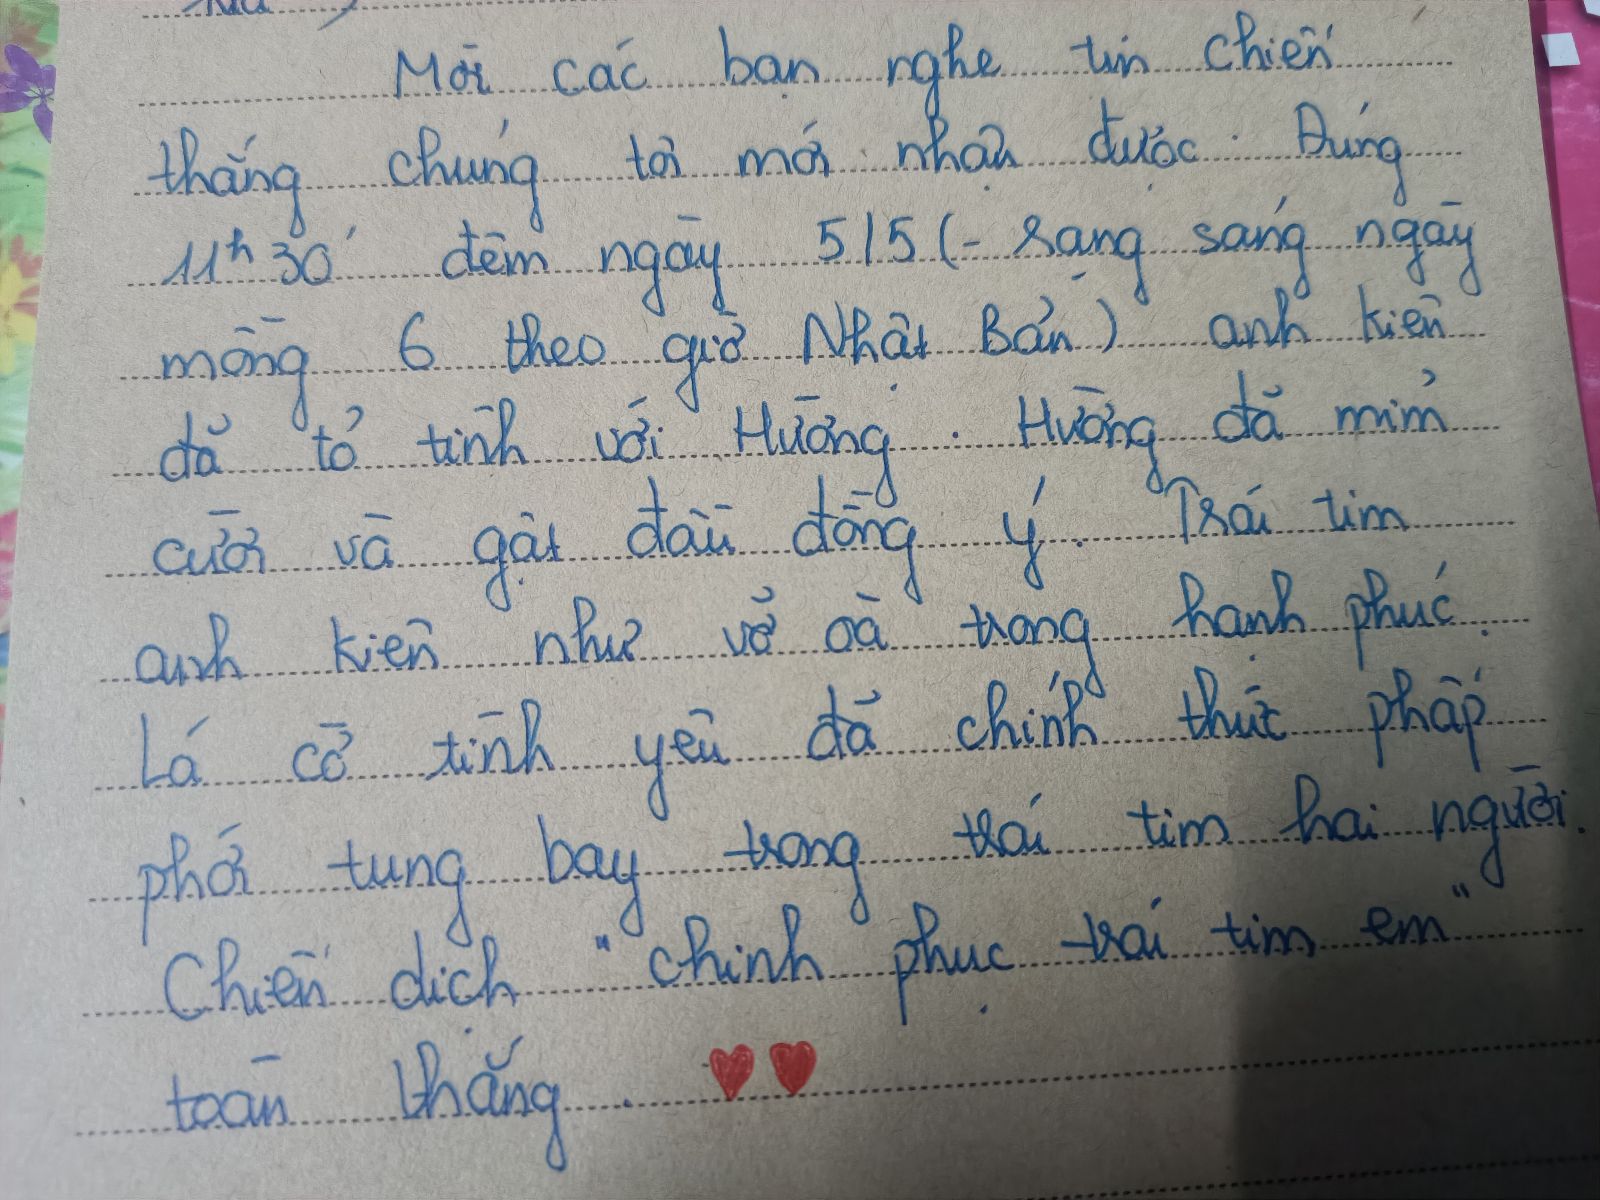 Mời các bạn nghe tin chiến
thắng chúng tôi mới nhận được. Đúng
11h30' đêm ngày 5/5 (- rạng sáng ngày
mồng 6 theo giờ Nhật Bản) anh Kiên
đã tỏ tình với Hường. Hường đã mỉm
cười và gật đầu đồng ý. Trái tim
anh Kiên như vỡ oà trong hạnh phúc.
Lá cờ tình yêu đã chính thức phấp
phới tung bay trong trái tim hai người.
Chiến dịch "chinh phục trái tim em"
toàn thắng.